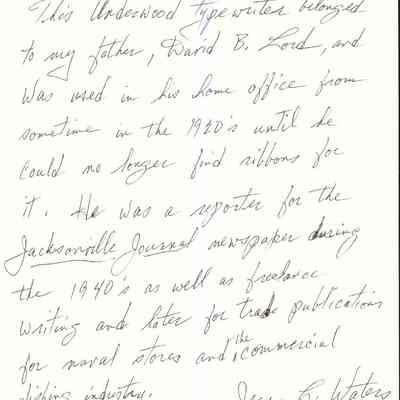 This Underwood typewriter belonged
to my father, David B. Lord, and
was used in his home office from
sometime in the 1920's until he
could no longer find ribbons for
it. He was a reporter for the
Jacksonville Journal newspaper during
the 1940's as well as freelance
writing and later for trade publications
for naval stores and the commercial
fishing industry.
C. Waters